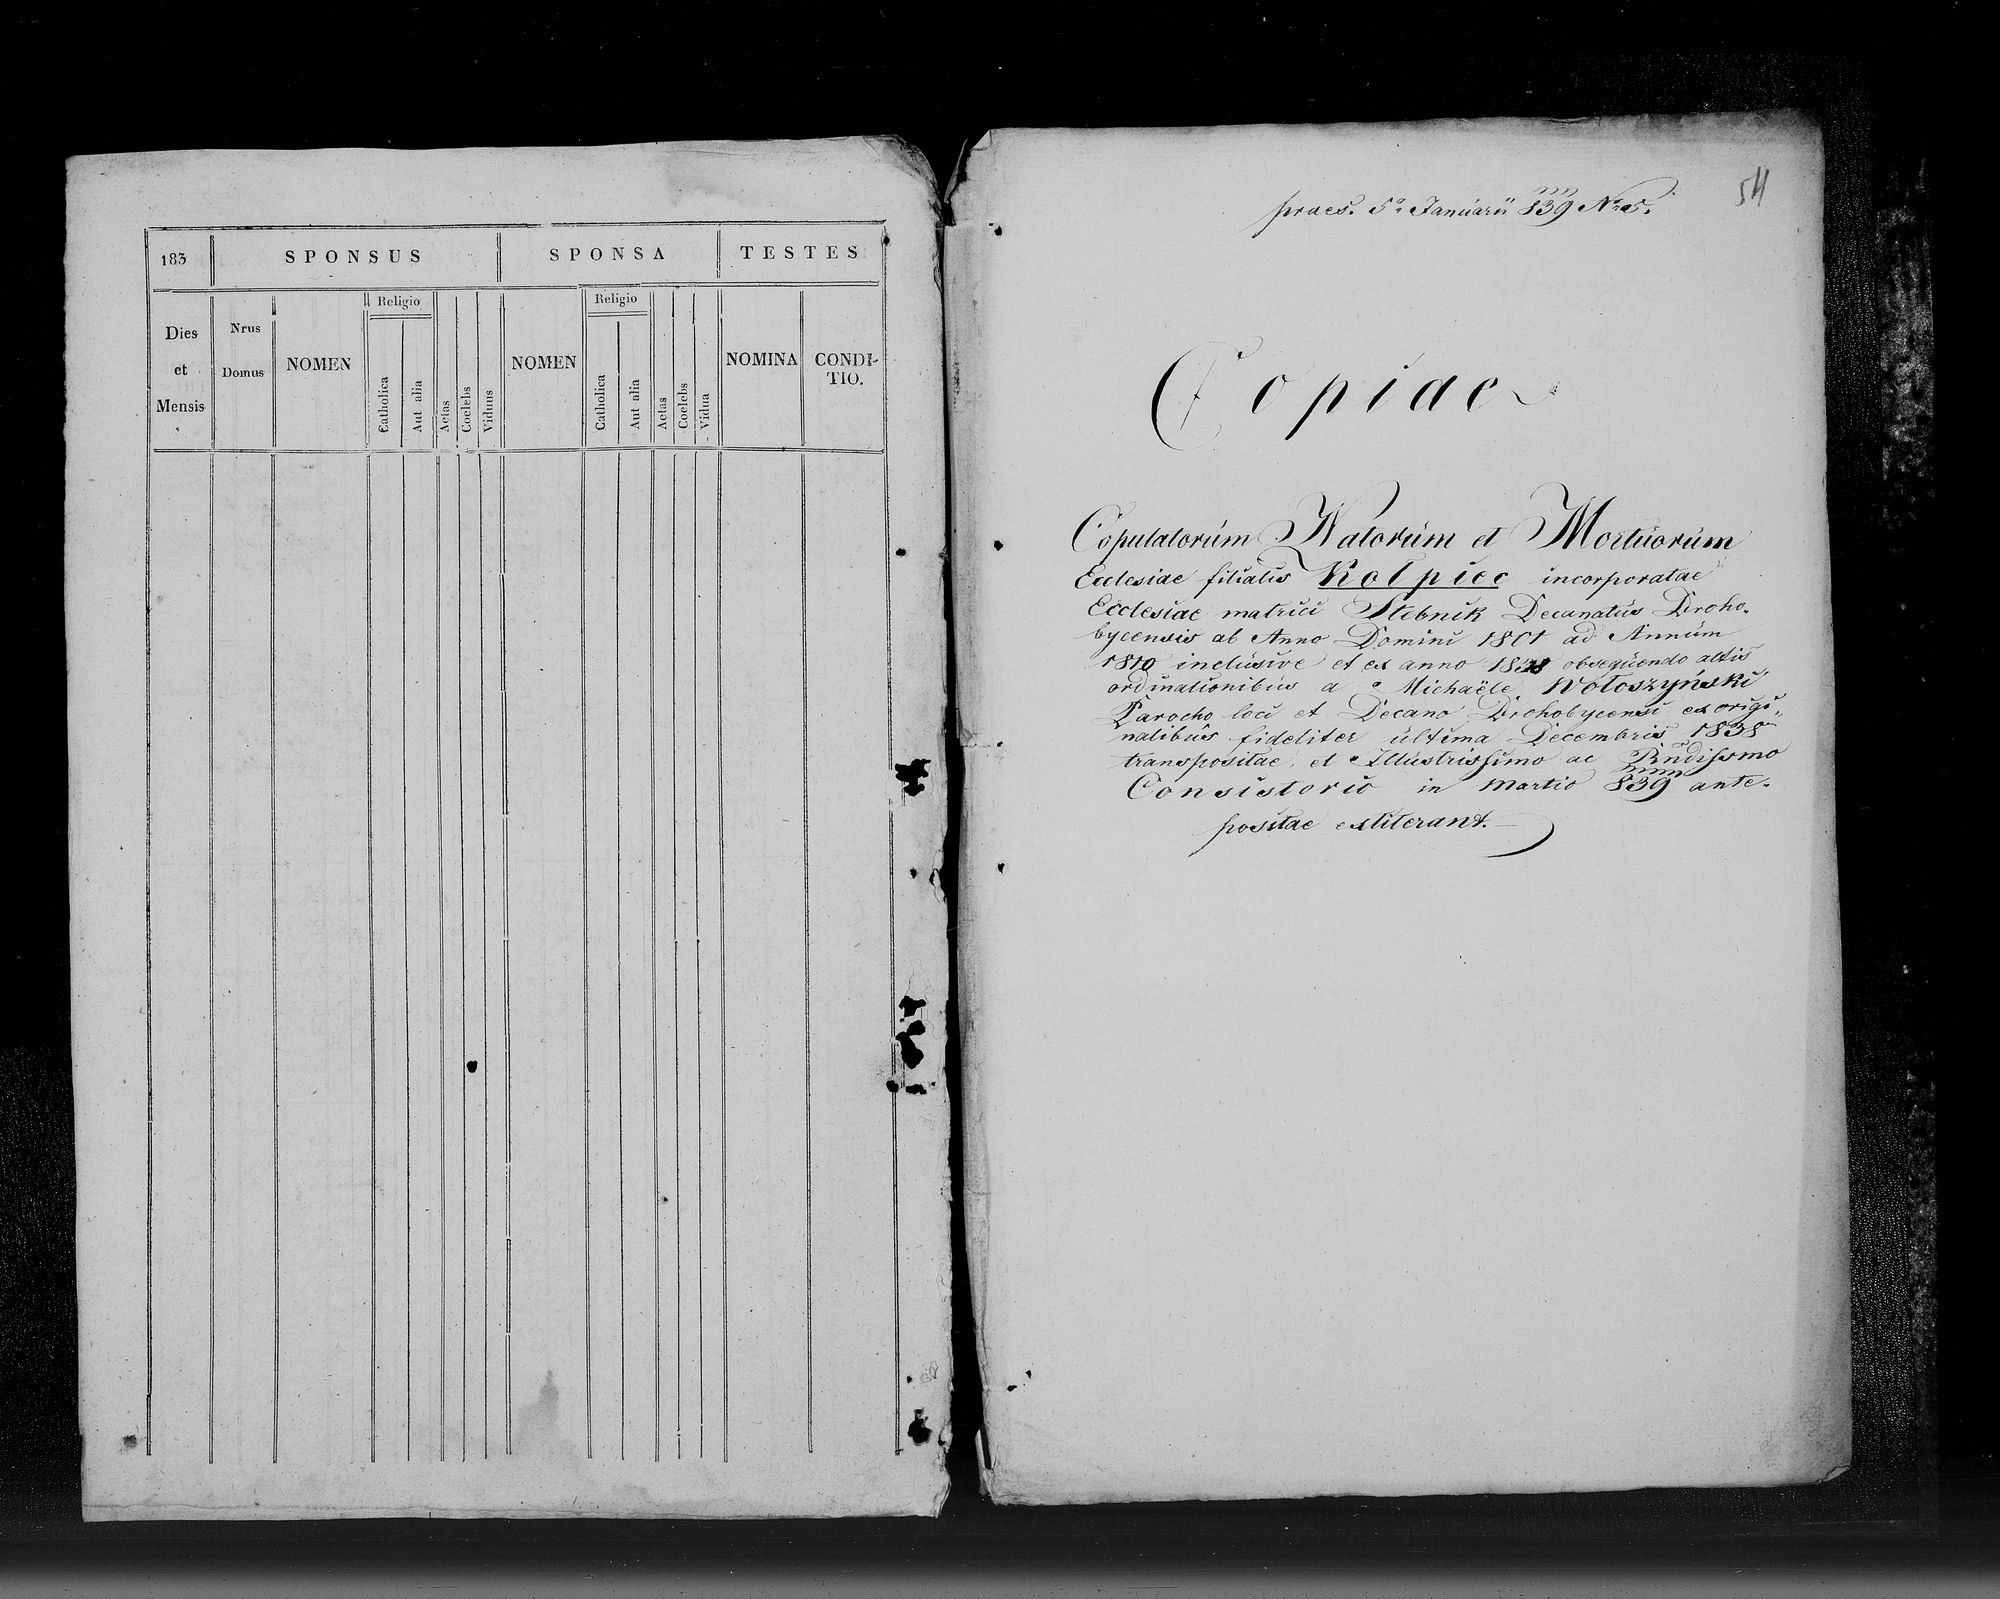 183 SPONSUS SPONSA TESTES
Dies et Mensis Nrus Domus NOMEN Religio Catholica Aut alia Aetas Coelebs Viduus NOMEN Religio Catholica Aut alia Aetas Coelebs Vidua NOMINA CONDI-
TIO.
54
praes. 5a Januarii 839 Nro 5.
Copiae
Copulatorum Natorum et Mortuorum
Ecclesiae filialis Kołpiec incorporatae
Ecclesiae matrici Stebnik Decanatus Droho-
bycensis ab Anno Domini 1801 ad Annum
1810 inclusive et ex anno 1838 obsequendo altis
ordinationibus a Michaële Wołoszyński
Parocho loci et Decano Drohobycensi ex origi„
nalibus fideliter ultima Decembris 1838
transpositae et Illustrissimo ac Rndissmo
Consistorio in Martio 839 ante-
positae extiterant.